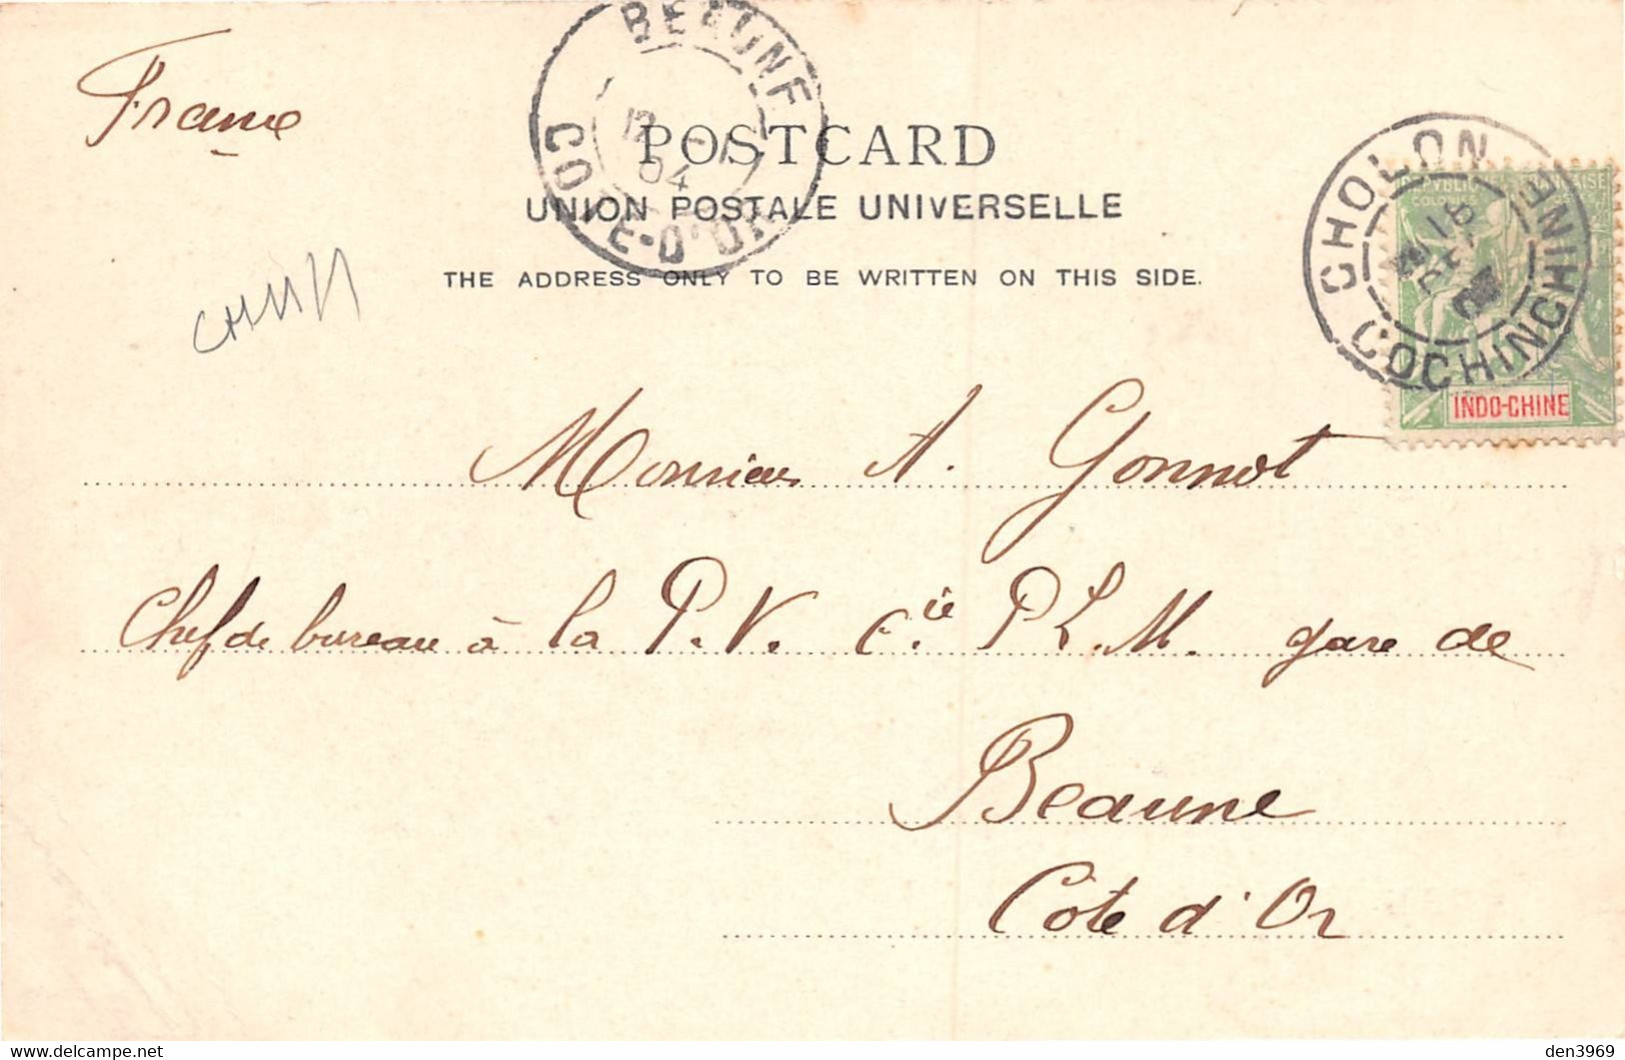 France
BEAUNE
COTE-D'OR
12 -1
04
POSTCARD
UNION POSTALE UNIVERSELLE
THE ADDRESS ONLY TO BE WRITTEN ON THIS SIDE.
CHOLON
COCHINCHINE
INDO-CHINE
Monsieur A. Gonnot
Chef de bureau à la P.V. Cie P.L.M. gare de
Beaune
Côte d'Or
den3969